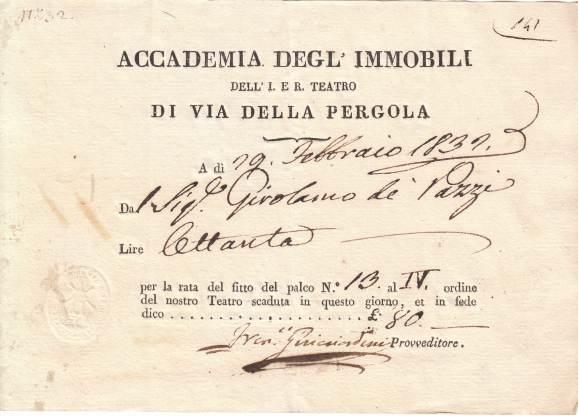 1832.
141
ACCADEMIA DEGL' IMMOBILI
DELL' I. E R. TEATRO
DI VIA DELLA PERGOLA
A dì 29. Febbraio 1832.
Da l Sig.r Girolamo de' Pazzi
Lire Ottanta
per la rata del fitto del palco N.° 13. al IV. ordine
del nostro Teatro scaduta in questo giorno, et in fede
dico . . . . . . . . . . . . . . £ 80. —
Guicciardini Provveditore.